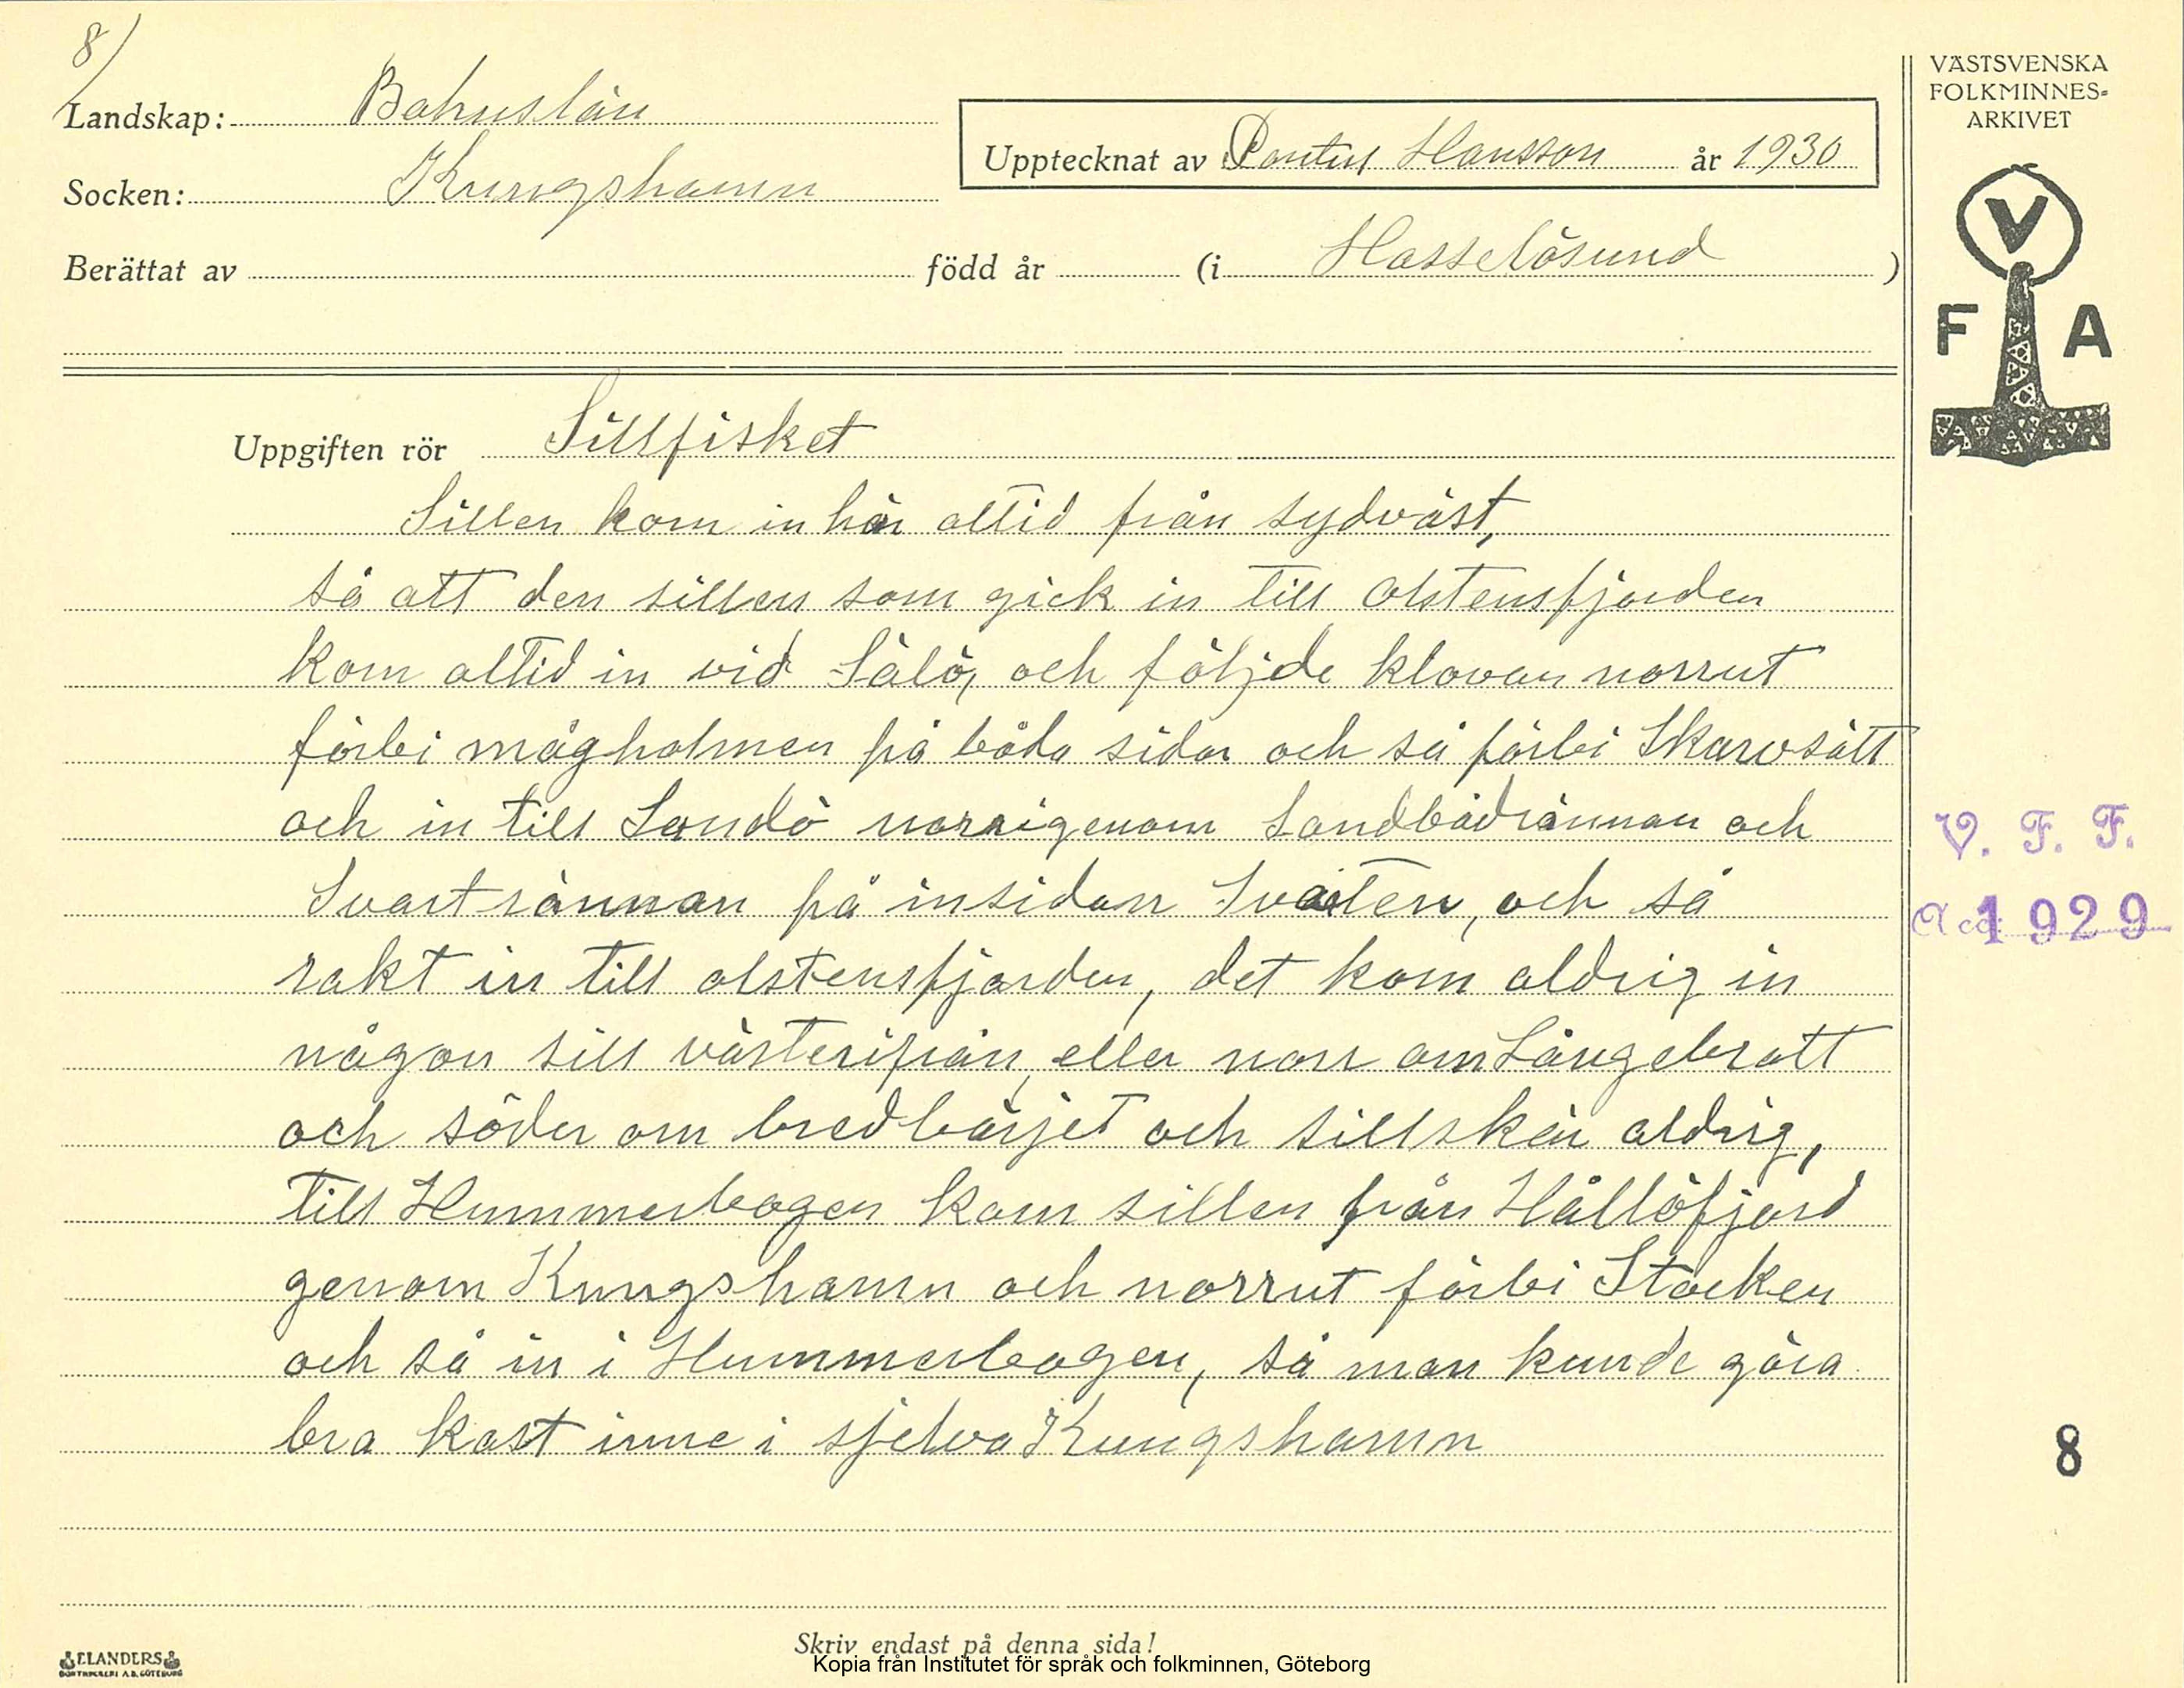 8/
Landskap: Bohuslän
Socken: Kungshamn
Berättat av född år (i Hasselösund)
Upptecknat av Pontus Hansson år 1930
VÄSTSVENSKA
FOLKMINNES-
ARKIVET
V
F A
Uppgiften rör Sillfisket
Sillen kom in här altid från sydväst,
så att den sillen som gick in till Olstensfjorden
kom altid in vid Sälö, och följde klovan norrut
förbi mågholmen på båda sidor och så förbi Skarvsätt
och in till Sandö norrigenom Sandbådrännan och
Svartrännan på insidan Svarten, och så
rakt in till olstensfjorden, det kom aldrig in
någon sill västerifrån, eller norr om Långebratt
och söder om bredbärjet och sillskär aldrig,
till Hummerbogen kom sillen från Hållöfjord
genom Kungshamn och norrut förbi Stocken
och så in i Hummerbogen, så man kunde göra
bra kast inne i sjelva Kungshamn
V. F. F.
Acc. 1929
8
ELANDERS
BOKTRYCKERI A.B. GÖTEBORG
Skriv endast på denna sida!
Kopia från Institutet för språk och folkminnen, Göteborg